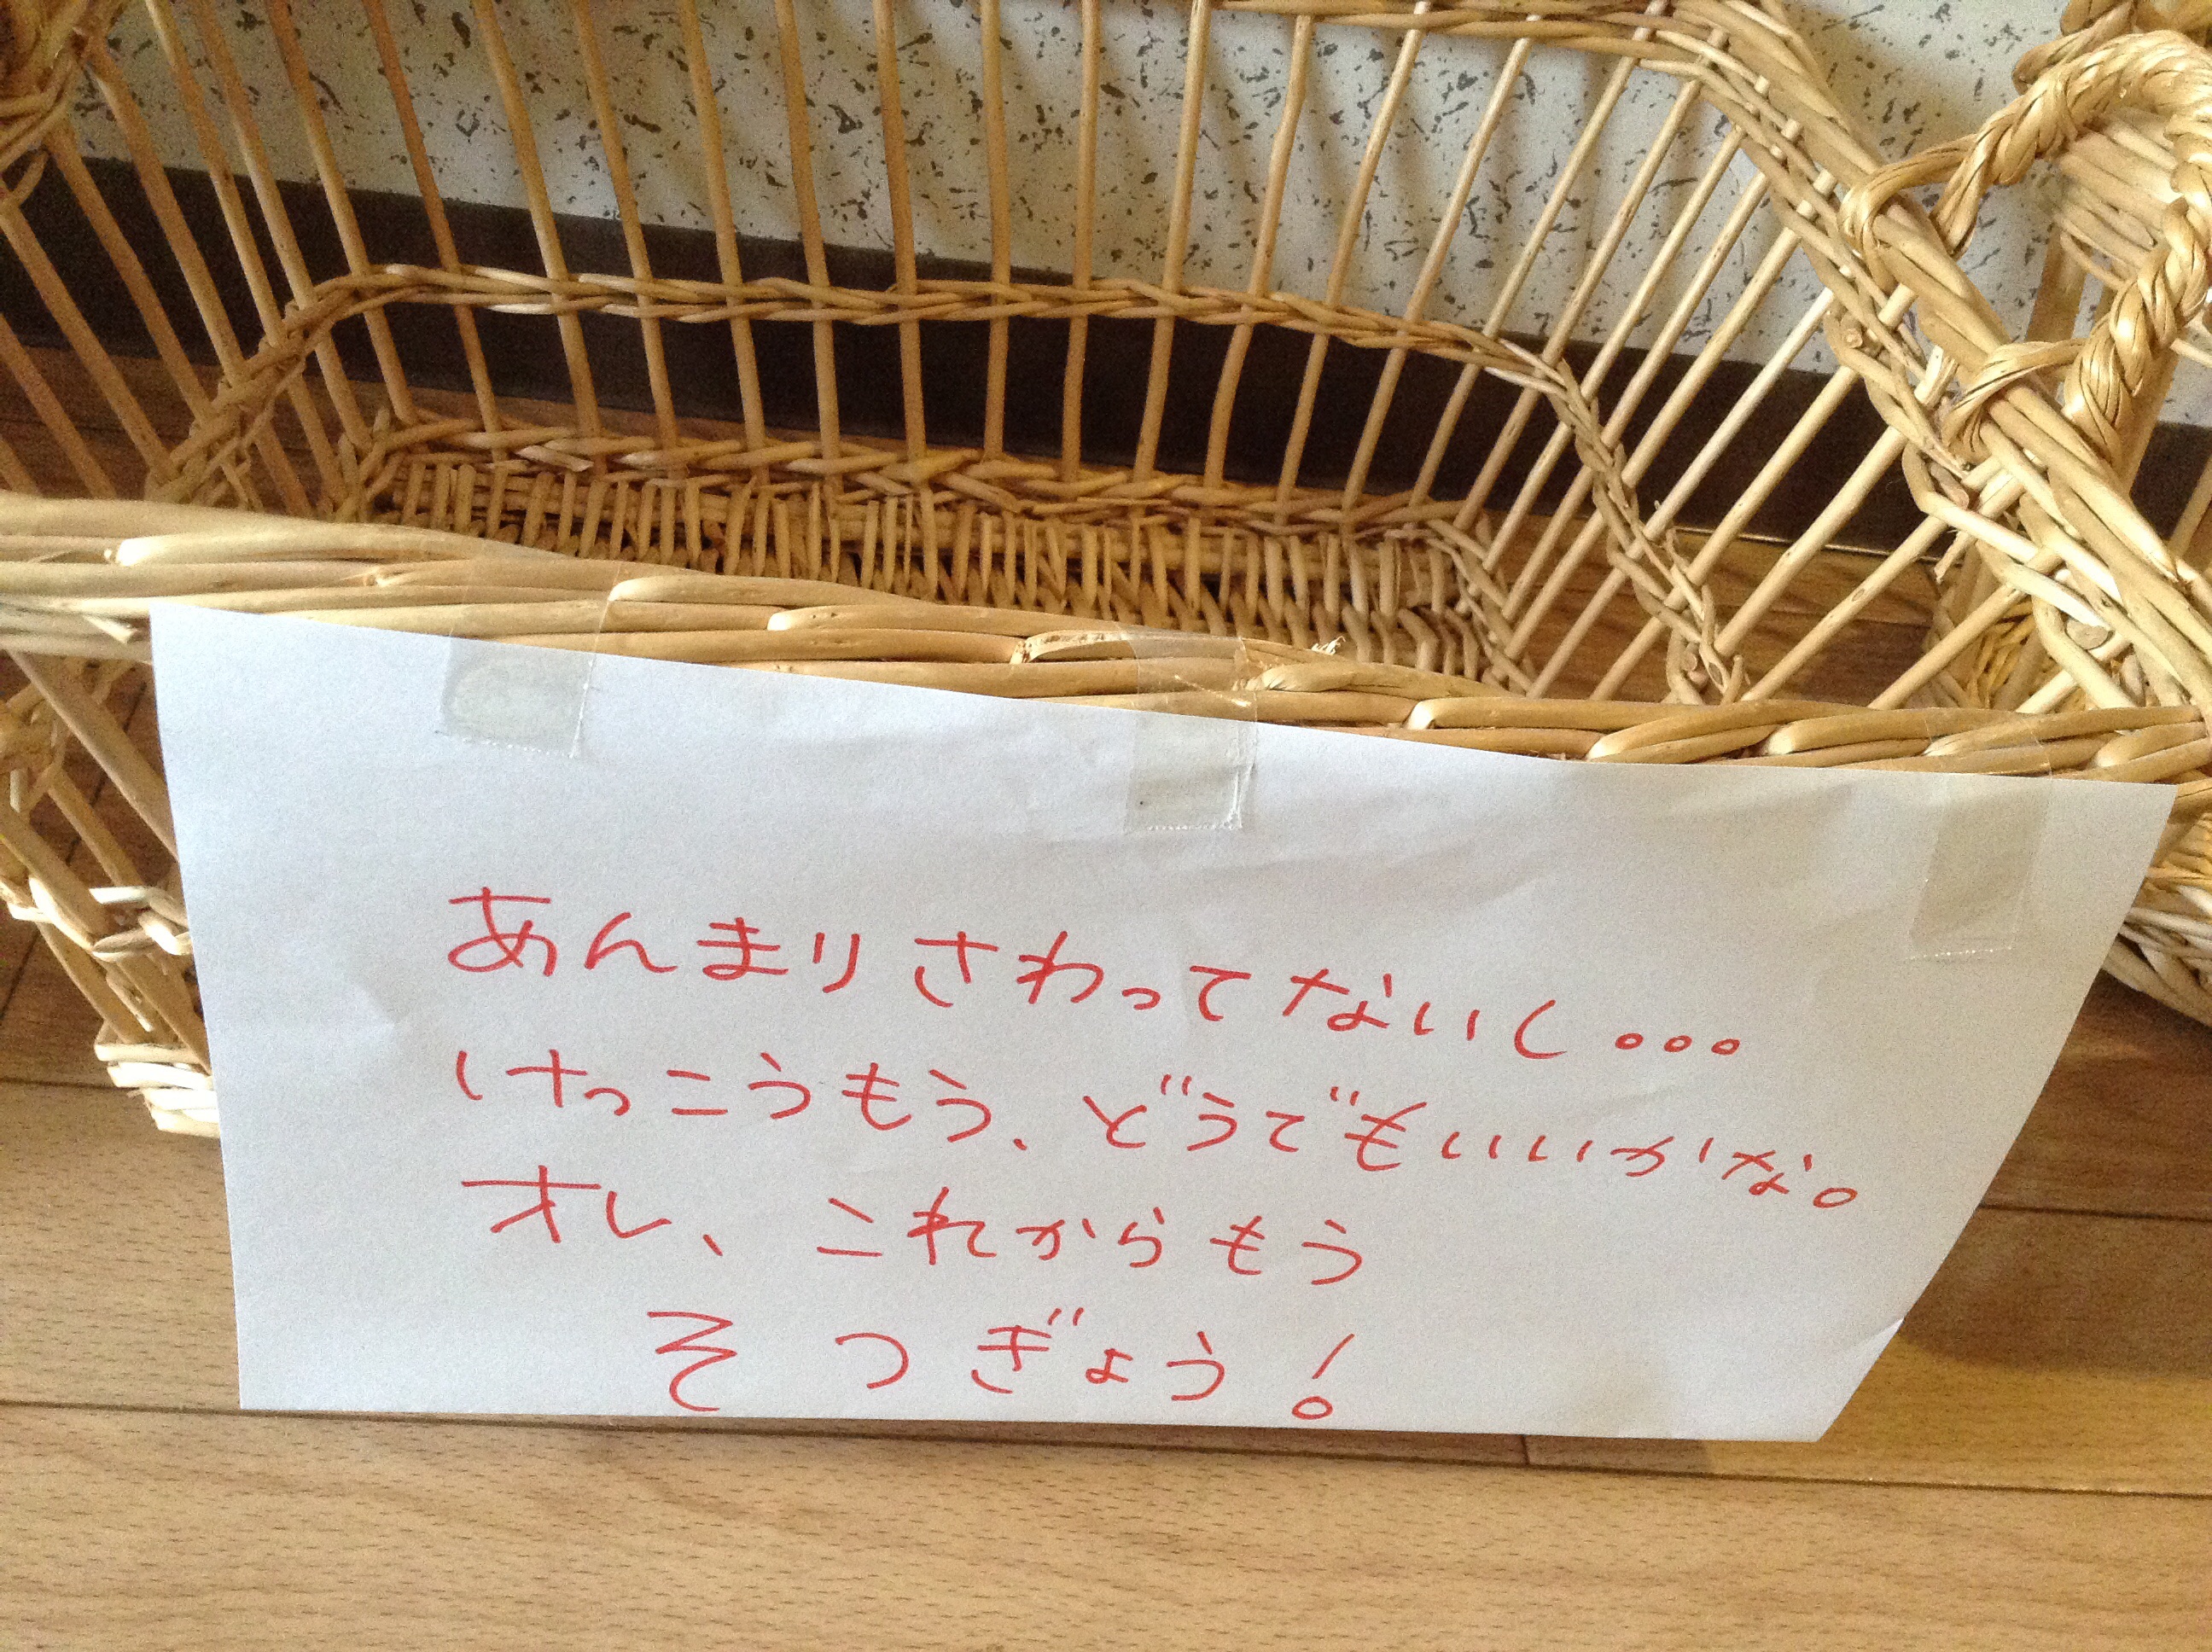 あんまりさわってないし...
けっこうもう、どうでもいいかな。
オレ、これからもう
そつぎょう!